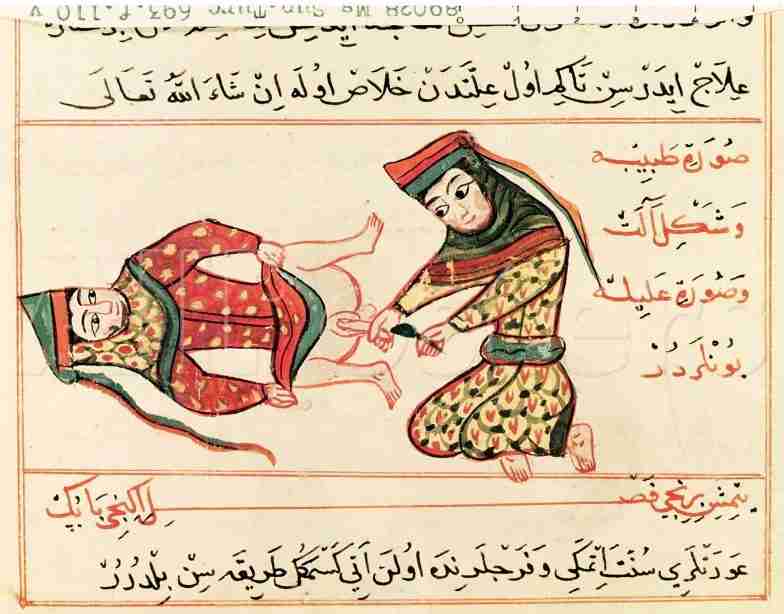 علاج ایدرسن تاکم اول علتندن خلاص اوله ان شاء الله تعالی
صورة طبیبه
وشکل آلت
وصورة علیله
بونلردر
یتمش برنجی فصل ایکنجی بابک
عورتلری سنت اتمکی وفرجلرنده اولن اتی کسمکک طریقه سن بلدرر